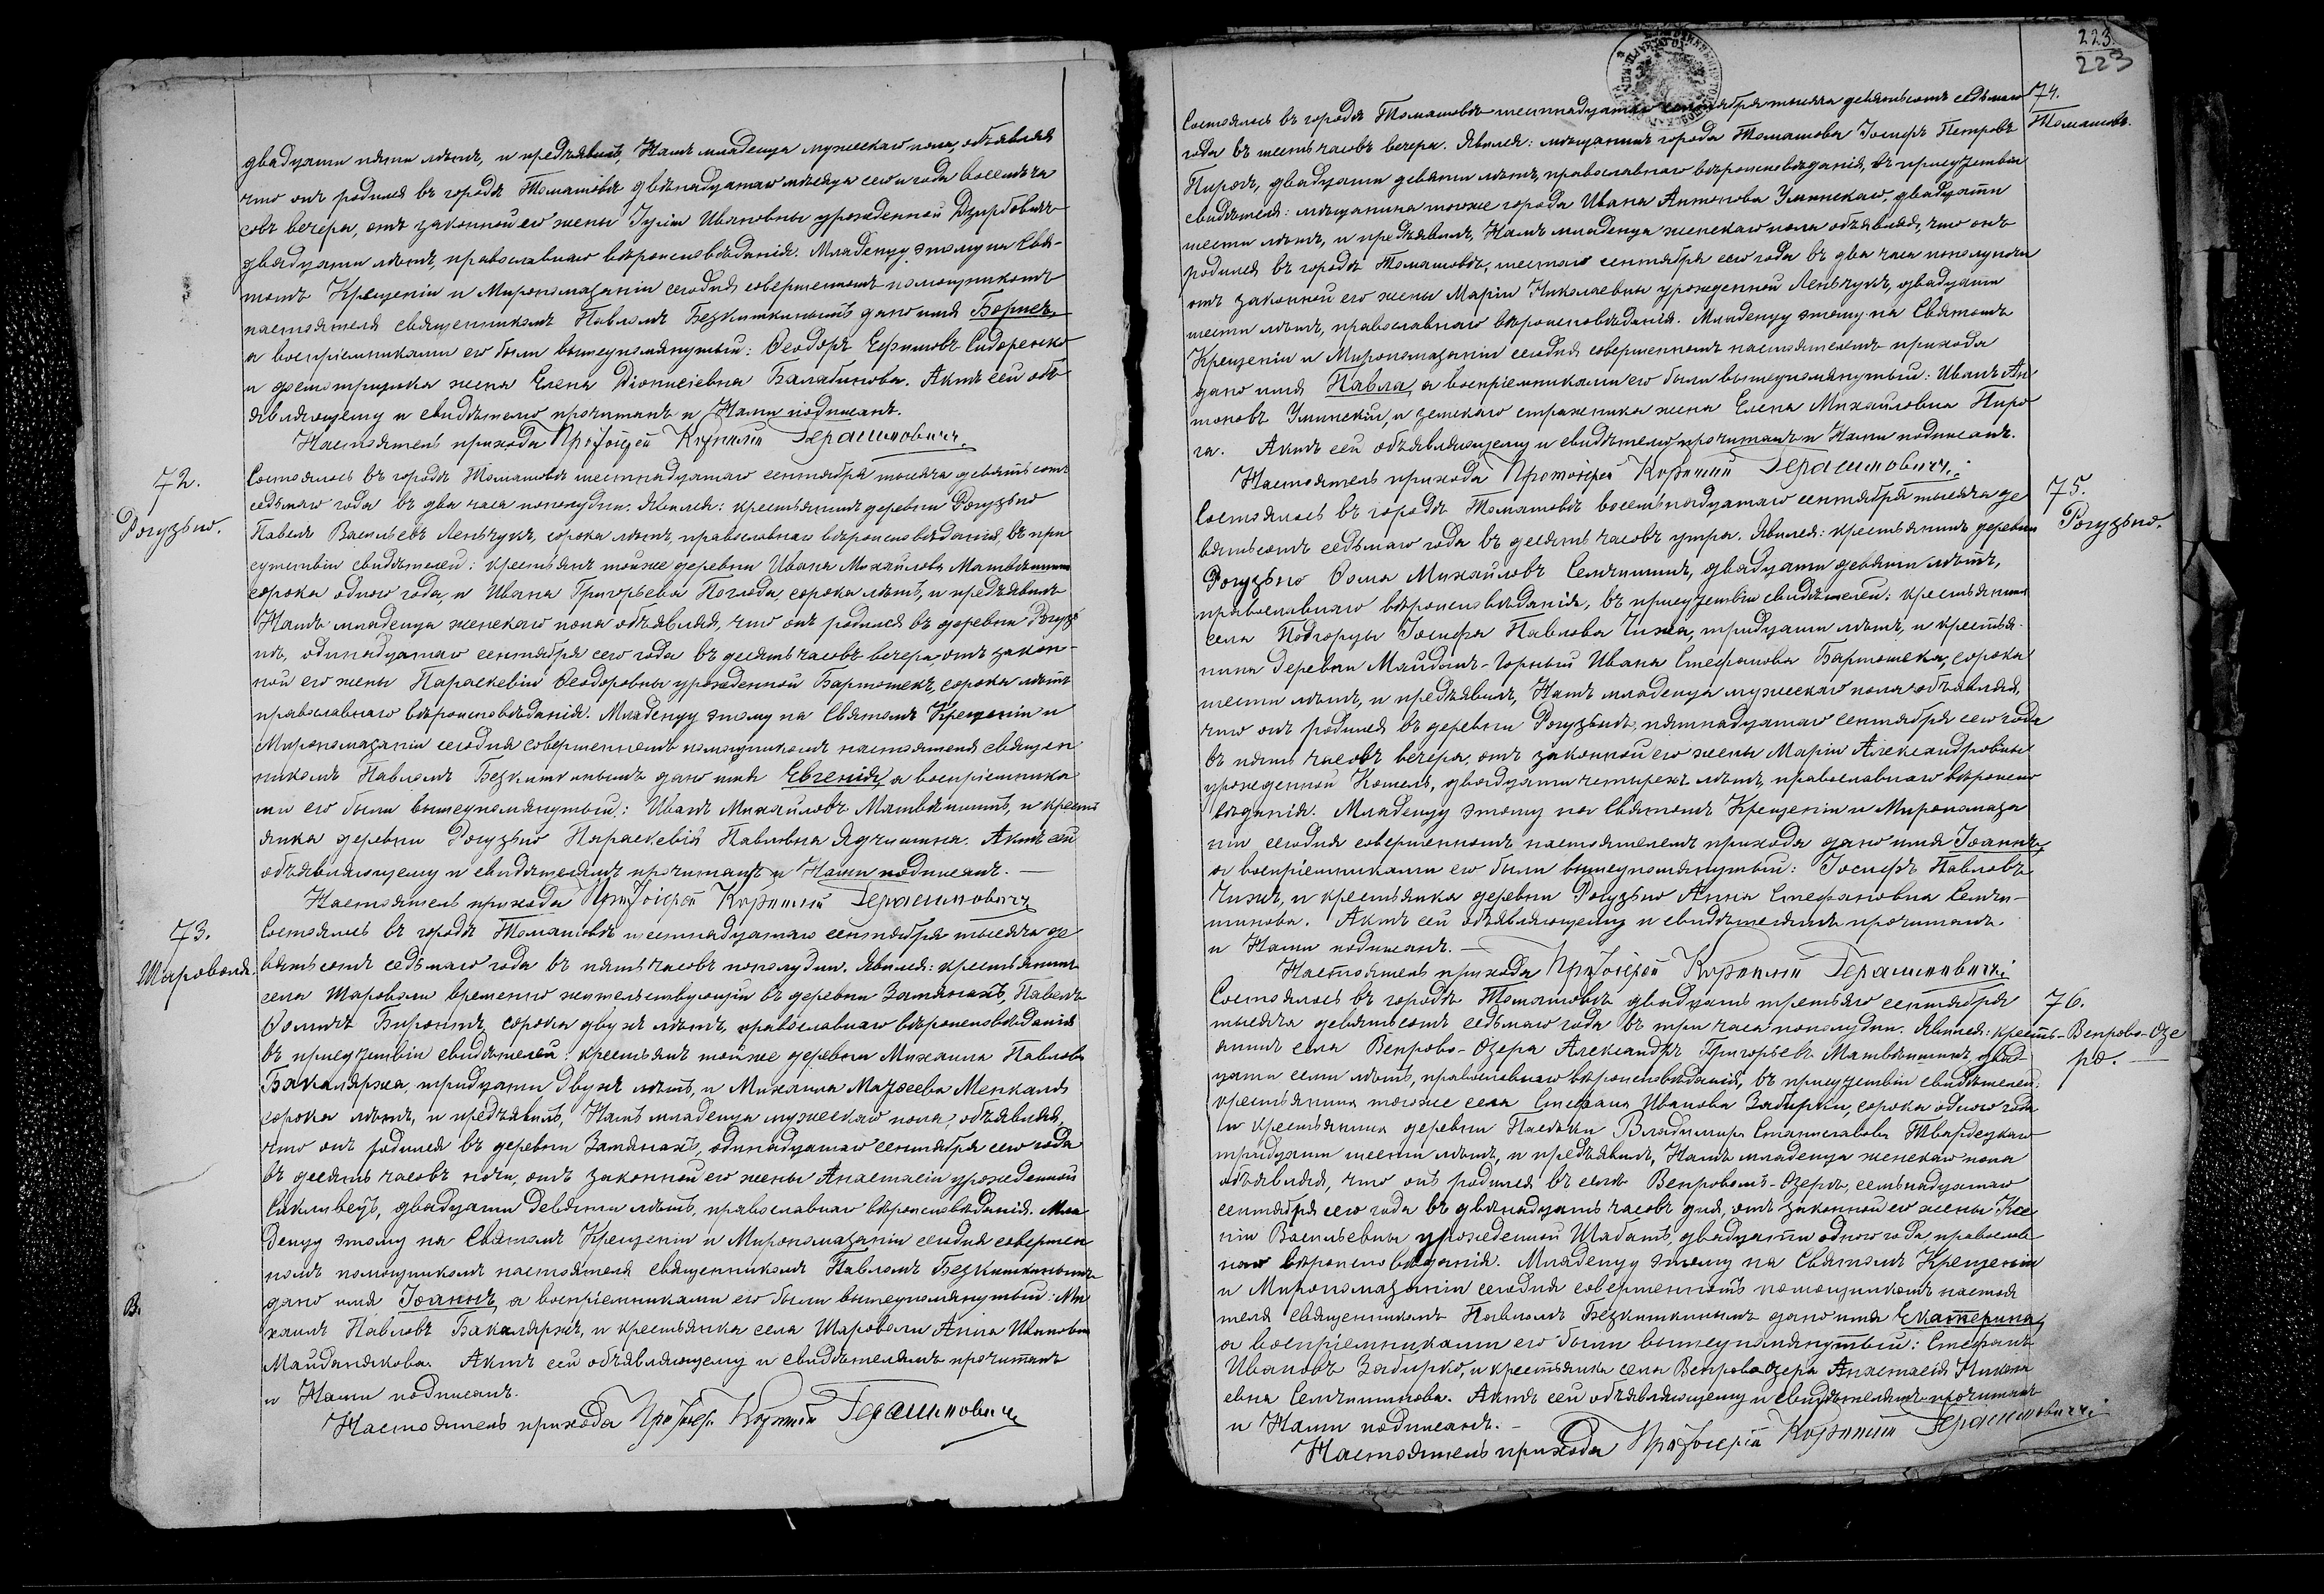 двадцати пяти лѣтъ, и предъявилъ Намъ младенца мужескаго пола, объявляя
что онъ родился въ городѣ Томашовѣ двѣнадцатаго мѣсяца сего и года восемь ча
совъ вечера, отъ законной его жены Іуліи Ивановны урожденной
двадцати лѣтъ, православнаго вѣроисповѣданія. Младенцу этому на Свя-
томъ Крещеніи и Миропомазаніи сегодня совершенномъ помощникомъ
настоятеля священникомъ Павломъ Безкишкинымъ дано имя Борисъ,
а воспріемниками его были вышеупомянутый: Ѳеодоръ Ефимовъ Сидоренко
и жена Елена Діонисіевна Балабанова. Актъ сей объ
являющему и свидѣтелю прочитанъ и Нами подписанъ.
Настоятель прихода Протоіерей Корнилій Герасимовичъ.
72.
Рогузьно.
Состоялось въ городѣ Томашовѣ шестнадцатаго сентября тысяча девятьсотъ
седьмаго года въ два часа пополудни. Явился: крестьянинъ деревни Рогузьно
Павелъ Васильевъ Леньчукъ, сорока лѣтъ, православнаго вѣроисповѣданія, въ при
сутствіи свидѣтелей: крестьянъ тойже деревни Ивана Михайлова Матвѣишина
сорока одного года, и Ивана Григорьева Поглода, сорока лѣтъ, и предъявилъ
Намъ младенца женскаго пола объявляя, что онъ родился въ деревни Рогузь
нѣ, одинадцатаго сентября сего года въ десять часовъ вечера, отъ закон-
ной его жены Параскевіи Ѳеодоровны урожденной Бартошекъ, сорока лѣтъ
православнаго вѣроисповѣданія. Младенцу этому на Святомъ Крещеніи и
Миропомазаніи сегодня совершенномъ помощникомъ настоятеля священ
никомъ Павломъ Безкишкинымъ дано имя Евгенія, а воспріемника
ми его были вышеупомянутый: Иванъ Михайловъ Матвѣишинъ, и кресть
янка деревни Рогузьно Параскевія Павловна Ядчишина. Актъ сей
объявляющему и свидѣтелямъ прочитанъ и Нами подписанъ. —
Настоятель прихода Протоіерей Корнилій Герасимовичъ
73.
Шароволя.
Состоялось въ городѣ Томашовѣ шестнадцатаго сентября тысяча де
вятьсотъ седьмаго года въ пять часовъ пополудни. Явился: крестьянинъ
села Шароволи временно жительствующій въ деревни Замянахъ, Павелъ
Ѳоминъ сорока двухъ лѣтъ, православнаго вѣроисповѣданія
въ присутствіи свидѣтелей: крестьянъ тойже деревни Михаила Павлова
Бакаляржа, тридцати двухъ лѣтъ, и Михаила
сорока лѣтъ, и предъявилъ, Намъ младенца мужескаго пола, объявляя,
что онъ родился въ деревни Замянахъ, одинадцатаго сентября сего года
въ десять часовъ ночи, отъ законной его жены Анастасіи урожденной
двадцати девяти лѣтъ, православнаго вѣроисповѣданія. Мла
денцу этому на Святомъ Крещеніи и Миропомазаніи сегодня совершен
номъ помощникомъ настоятеля священникомъ Павломъ Безкишкинымъ
дано имя Іоаннъ, а воспріемниками его были вышеупомянутый: Ми
хаилъ Павловъ Бакаляржъ, и крестьянка села Шароволи Анна Иванова
Майданякова. Актъ сей объявляющему и свидѣтелямъ прочитанъ
и Нами подписанъ.
Настоятель прихода Протоіер. Корнилій Герасимовичъ
В.
223.
223
74.
Томашовъ.
Состоялось въ городѣ Томашовѣ шестнадцатаго сентября тысяча девятьсотъ седьмаго
года въ шесть часовъ вечера. Явился: мѣщанинъ города Томашова Іосифъ Петровъ
Пирогъ, двадцати девяти лѣтъ, православнаго вѣроисповѣданія, въ присутствіи
свидѣтеля: мѣщанина тогоже города Ивана Антонова Улинскаго, двадцати
шести лѣтъ, и предъявилъ, Намъ младенца женскаго пола объявляя, что онъ
родился въ городѣ Томашовѣ, шестаго сентября сего года въ два часа пополуночи
отъ законной его жены Маріи Николаевны урожденной Леньчукъ, двадцати
шести лѣтъ, православнаго вѣроисповѣданія. Младенцу этому на Святомъ
Крещеніи и Миропомазаніи сегодня совершенномъ настоятелемъ прихода
дано имя Павла, а воспріемниками его были вышеупомянутый: Иванъ Ан
тоновъ Улинскій, и земскаго стражника жена Елена Михайловна Пиро
га. Актъ сей объявляющему и свидѣтелю прочитанъ и Нами подписанъ.
Настоятель прихода Протоіерей Корнилій Герасимовичъ.
75.
Рогузьно.
Состоялось въ городѣ Томашовѣ восемьнадцатаго сентября тысяча де
вятьсотъ седьмаго года въ десять часовъ утра. Явился: крестьянинъ деревни
Рогузьно Ѳома Михайловъ Семчишинъ, двадцати девяти лѣтъ,
православнаго вѣроисповѣданія, въ присутствіи свидѣтелей: крестьянина
села Подгорцы Іосифа Павлова Чижа, тридцати лѣтъ, и крестья-
нина деревни Майданъ-Горный Ивана Стефанова Бартошека, сорока
шести лѣтъ, и предъявилъ, Намъ младенца мужескаго пола объявляя,
что онъ родился въ деревни Рогузьнѣ, пятнадцатаго сентября сего года
въ пять часовъ вечера, отъ законной его жены Маріи Александровны
урожденной Котель, двадцати четырехъ лѣтъ, православнаго вѣроиспо
вѣданія. Младенцу этому на Святомъ Крещеніи и Миропомаза
ніи сегодня совершенномъ настоятелемъ прихода дано имя Іоаннъ,
а воспріемниками его были вышеупомянутый: Іосифъ Павловъ
Чижъ, и крестьянка деревни Рогузьно Анна Стефановна Семчи-
шинова. Актъ сей объявляющему и свидѣтелямъ прочитанъ
и Нами подписанъ. —
Настоятель прихода Протоіерей Корнилій Герасимовичъ
76.
Вепрово-Озе
ро. —
Состоялось въ городѣ Томашовѣ двадцать третьяго сентября
тысяча девятьсотъ седьмаго года въ три часа пополудни. Явился: кресть-
янинъ села Вепрово-Озера Александръ Григорьевъ Матвѣишинъ, двад-
цати семи лѣтъ, православнаго вѣроисповѣданія, въ присутствіи свидѣтелей:
крестьянина тогоже села Стефана Иванова Забирки, сорока одного года
и крестьянина деревни Пасѣки Владимира Станиславова Твардецкаго
тридцати шести лѣтъ, и предъявилъ, Намъ младенца женскаго пола
объявляя, что онъ родился въ селѣ Вепровомъ-Озерѣ, семьнадцатаго
сентября сего года въ двѣнадцать часовъ дня, отъ законной его жены Ксе
ніи Васильевны урожденной Шабатъ, двадцати одного года, православ
наго вѣроисповѣданія. Младенцу этому на Святомъ Крещеніи
и Миропомазаніи сегодня совершенномъ помощникомъ настоя
теля священникомъ Павломъ Безкишкинымъ дано имя Екатерина,
а воспріемниками его были вышеупомянутый: Стефанъ
Ивановъ Забирко, и крестьянка села Вепрова озера Анастасія Никола
евна Семчишинова. Актъ сей объявляющему и свидѣтелямъ прочитанъ
и Нами подписанъ. —
Настоятель прихода Протоіерей Корнилій Герасимовичъ.